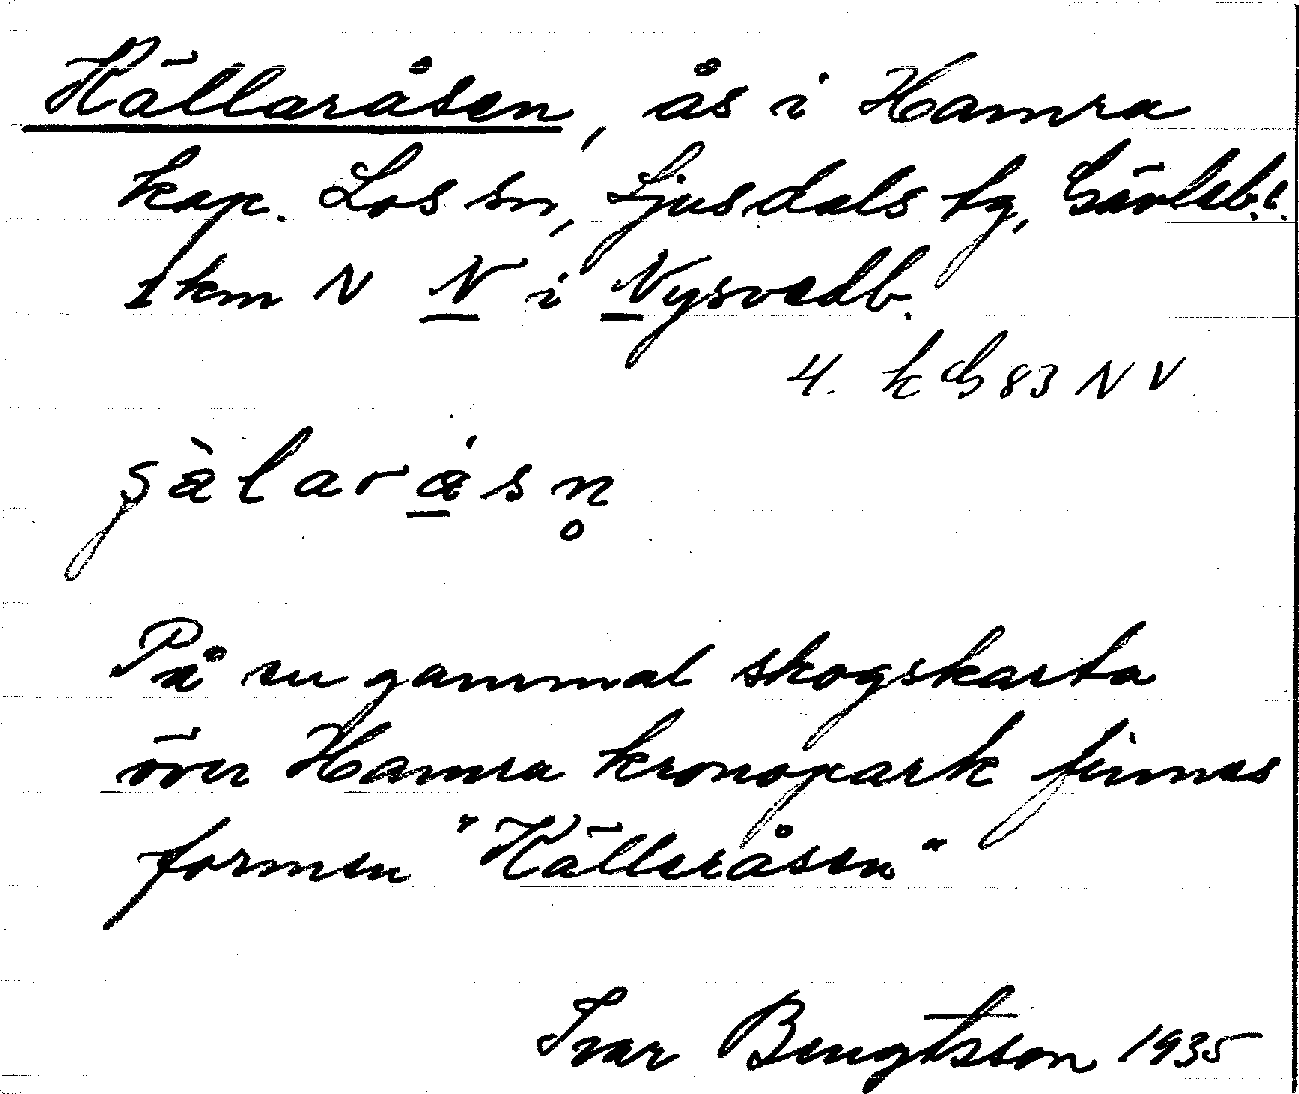 Källaråsen, ås i Hamra
kap. Los sn, Ljusdals tg, Gävleb.l.
1 km N N i Nysvedb.
4. k G 83 NV
På en gammal skogskarta
över Hamra kronopark finnes
formen "Källeråsen"
Ivar Bengtsson 1935